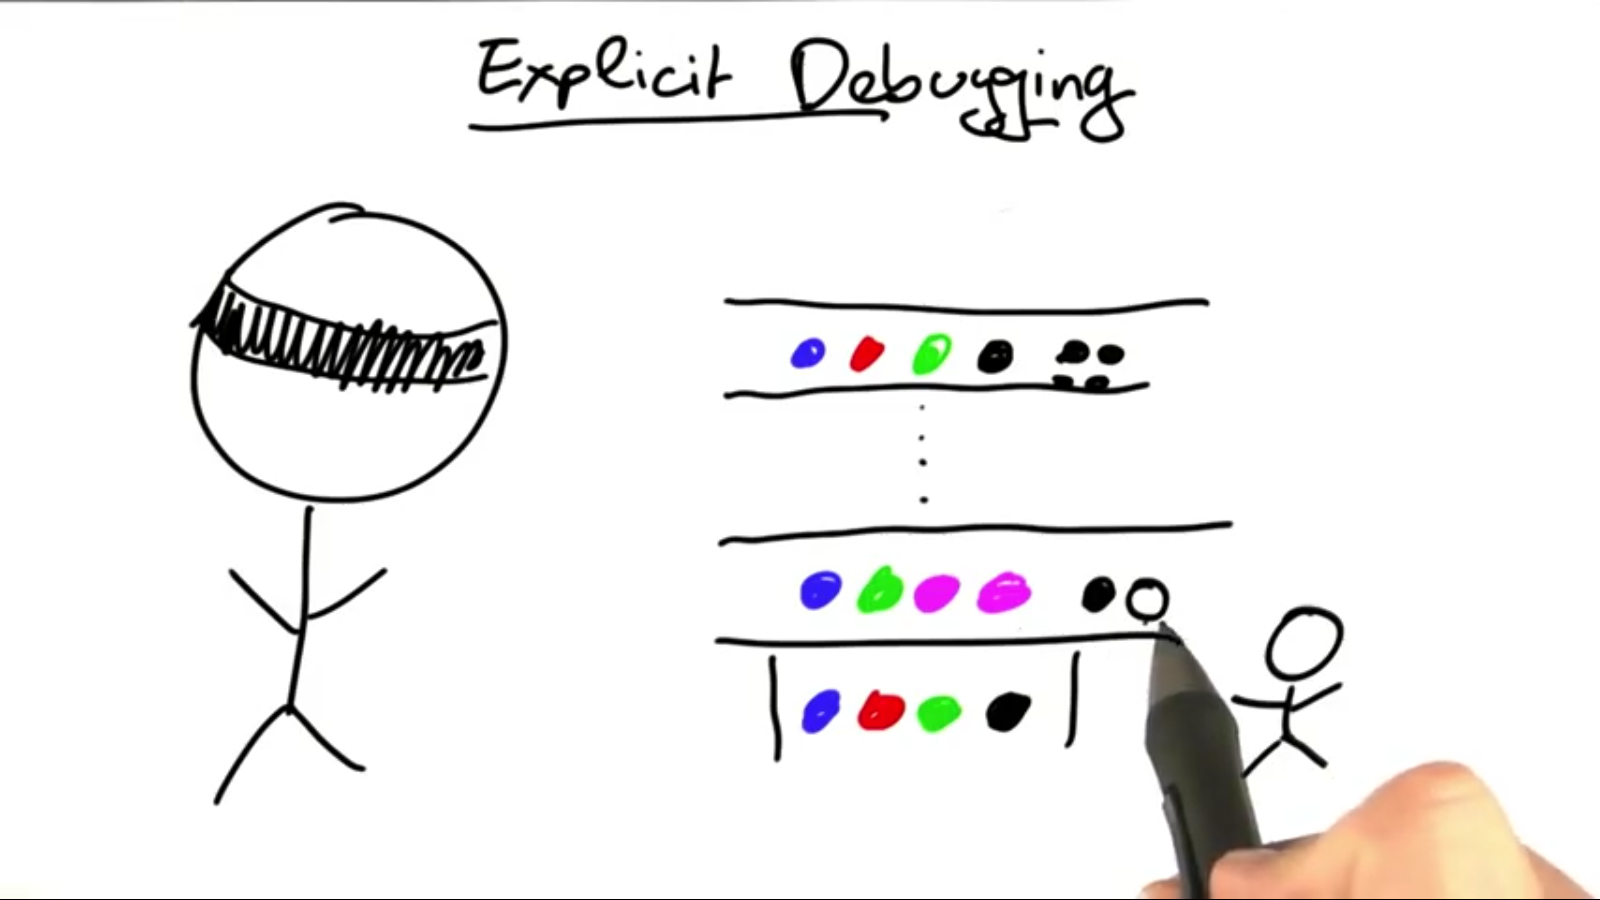 Explicit Debugging